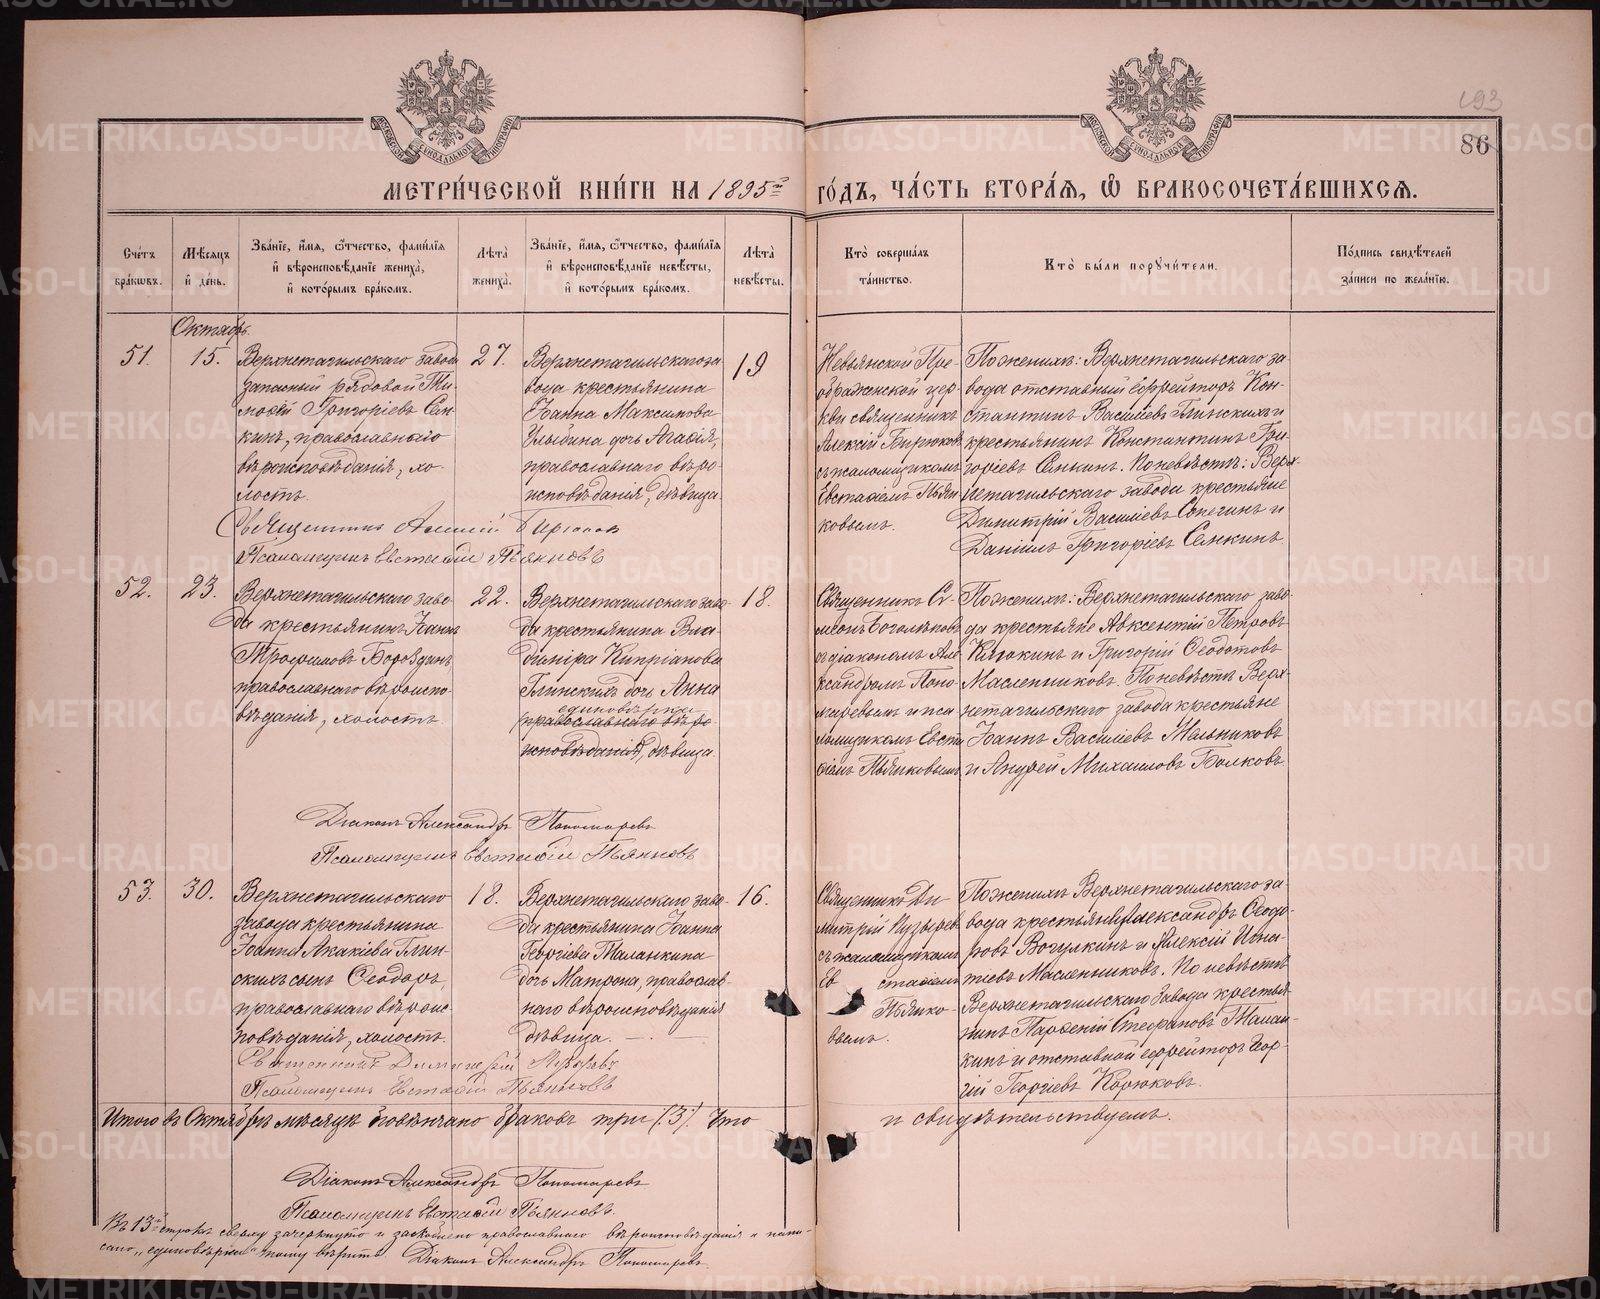 193
86
МЕТРИ́ЧЕСКОЙ КНИ́ГИ НА 1895й ГО́ДЪ, ЧА́СТЬ ВТОРА́Я, Ѿ БРАКОСОЧЕТА́ВШИХСЯ.
Сче́тъ бра́кѡвъ.
Мѣ́сяцъ и҆ де́нь.
Зва́нїе, и҆́мя, ѻ҆́тчество, фамі́лїя и҆ вѣроисповѣ́данїе жениха̀, и҆ кото́рымъ бра́комъ.
Лѣ́та жениха̀.
Зва́нїе, и҆́мя, ѻ҆́тчество, фамі́лїя и҆ вѣроисповѣ́данїе невѣ́сты, и҆ кото́рымъ бра́комъ.
Лѣ́та невѣ́сты.
Кто̀ соверша́лъ та́инство.
Кто̀ бы́ли порꙋчи́тели.
По́дпись свидѣ́телей за́писи по жела́нїю.
Октябрь.
51.
15.
Верхнетагильскаго завода
запасный рядовой Ти-
моѳей Григоріевъ Сем-
кинъ, православнаго
вѣроисповѣданія, хо-
лостъ.
27.
Верхнетагильскаго за-
вода крестьянина
Іоанна Максимова
Улыбина дочь Агафія,
православнаго вѣро-
исповѣданія, дѣвица.
19
Невьянской Пре-
ображенской цер-
кви священникъ
Алексій Бирюков
съ псаломщикомъ
Евстаѳіемъ Пьян-
ковымъ.
По женихѣ: Верхнетагильскаго за-
вода отставный ефрейторъ Кон-
стантинъ Васильевъ Глинскихъ и
крестьянинъ Константинъ Гри-
горіевъ Семкинъ. По невѣстѣ: Верх-
нетагильскаго завода крестьяне
Димитрій Васильевъ Сопегинъ и
Даніилъ Григоріевъ Семкинъ.
Священникъ Алексій Бирюков
Псаломщикъ Евстаѳій Пьянковъ
52.
23.
Верхнетагильскаго заво-
да крестьянинъ Іоаннъ
Трофимовъ Бороздинъ,
православнаго вѣроиспо-
вѣданія, холостъ.
22.
Верхнетагильскаго заво-
да крестьянина Вла-
диміра Кипріанова
Глинскихъ дочь Анна
единовѣрки
(православнаго вѣро-
исповѣданія), дѣвица.
18.
Священникъ Си-
меонъ Боголѣповъ
съ діакономъ Але-
ксандромъ Поно-
маревымъ и пса-
ломщикомъ Евста-
ѳіемъ Пьянковымъ
По женихѣ: Верхнетагильскаго заво-
да крестьяне Авксентій Петровъ
Клюкинъ и Григорій Ѳеодотовъ
Масленниковъ. По невѣстѣ Верх-
нетагильскаго завода крестьяне
Іоаннъ Васильевъ Мельниковъ
и Андрей Михаиловъ Волковъ.
Діаконъ Александръ Пономаревъ
Псаломщикъ Евстаѳій Пьянковъ
53.
30.
Верхнетагильскаго
завода крестьянина
Іоанна Акакіева Глин-
скихъ сынъ Ѳеодоръ,
православнаго вѣроис-
повѣданія, холостъ.
18.
Верхнетагильскаго заво-
да крестьянина Іоанна
Георгіева Таланкина
дочь Матрона, православ-
наго вѣроисповѣданія
дѣвица.
16.
Священникъ Ди-
митрій Пузырев
съ псаломщикомъ
Евстаѳіемъ
Пьянко-
вымъ.
По женихѣ Верхнетагильскаго за-
вода крестьянинъ Александръ Ѳеодо-
ровъ Вогулкинъ и Алексій Игна-
тіевъ Масленниковъ. По невѣстѣ
Верхнетагильскаго завода крестья-
нинъ Парѳеній Стефановъ Талан-
кинъ и отставной ефрейторъ Геор-
гій Георгіевъ Корюковъ.
Священникъ Димитрій Пузыревъ
Псаломщикъ Евстаѳій Пьянковъ
Итого въ Октябрѣ мѣсяцѣ повѣнчано браковъ три (3). Что и свидѣтельствуемъ.
Діаконъ Александръ Пономаревъ
Псаломщикъ Евстаѳій Пьянковъ.
Въ 13й строкѣ сверху зачеркнуто и заскоблено православнаго вѣроисповѣданія и напи-
сано „единовѣрки" тому вѣрить Діаконъ Александръ Пономаревъ.